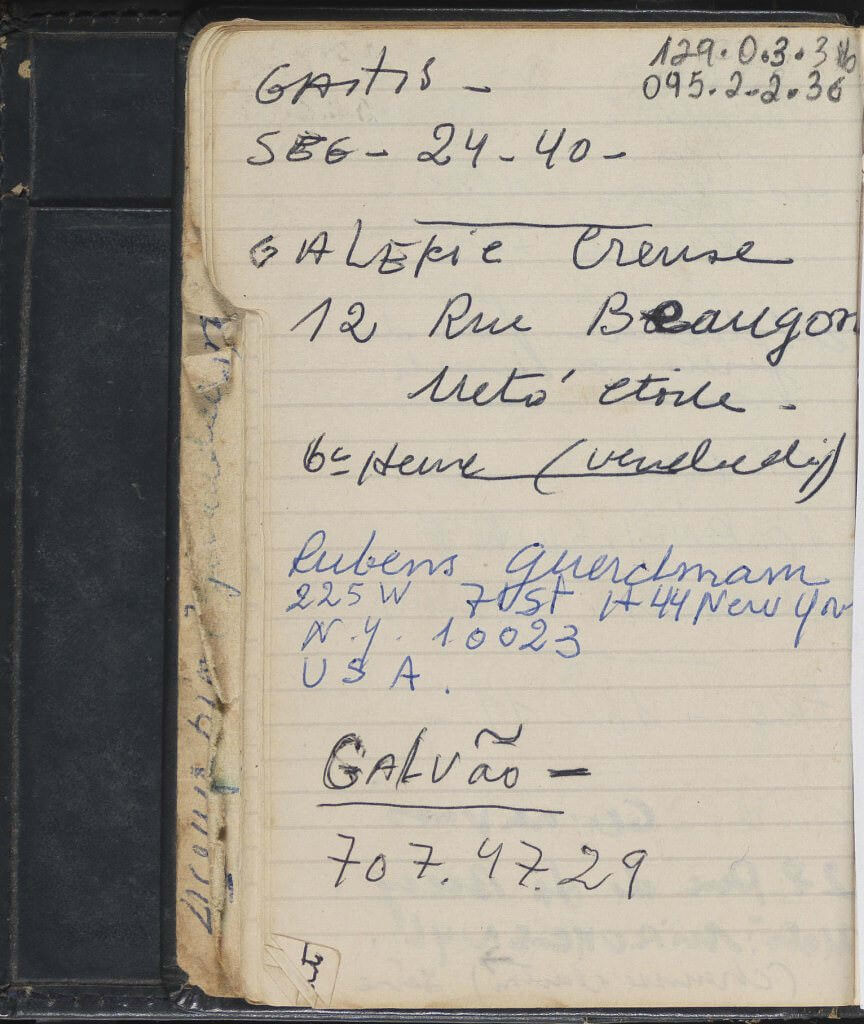 129.0.3.3
095.2.2.36
GAitis -
SEG - 24 - 40 -
GALERie Creuse
12 Rue Beaugon
Metó etoile -
6c Heure (vendredi)
Rubens guerchmam
225 W 71 St A 44 New Yor
N.Y. 10023
U S A.
GALVão -
707.47.29